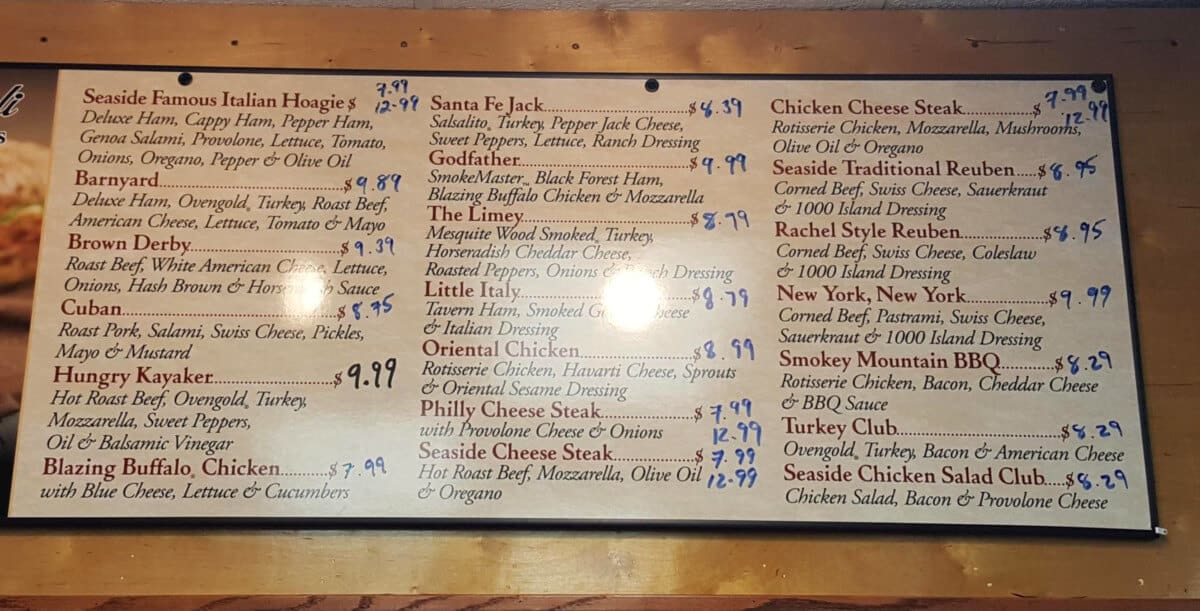 li
s
Seaside Famous Italian Hoagie $ 7.99
12.99
Deluxe Ham, Cappy Ham, Pepper Ham,
Genoa Salami, Provolone, Lettuce, Tomato,
Onions, Oregano, Pepper & Olive Oil
Barnyard....................................$9.89
Deluxe Ham, Ovengold® Turkey, Roast Beef,
American Cheese, Lettuce, Tomato & Mayo
Brown Derby..............................$9.39
Roast Beef, White American Cheese, Lettuce,
Onions, Hash Brown & Horseradish Sauce
Cuban..........................................$8.75
Roast Pork, Salami, Swiss Cheese, Pickles,
Mayo & Mustard
Hungry Kayaker........................$9.99
Hot Roast Beef, Ovengold® Turkey,
Mozzarella, Sweet Peppers,
Oil & Balsamic Vinegar
Blazing Buffalo® Chicken.........$7.99
with Blue Cheese, Lettuce & Cucumbers
Santa Fe Jack.............................$8.39
Salsalito® Turkey, Pepper Jack Cheese,
Sweet Peppers, Lettuce, Ranch Dressing
Godfather...................................$9.99
SmokeMaster™ Black Forest Ham,
Blazing Buffalo Chicken & Mozzarella
The Limey..................................$8.79
Mesquite Wood Smoked® Turkey,
Horseradish Cheddar Cheese,
Roasted Peppers, Onions & Ranch Dressing
Little Italy...................................$8.79
Tavern Ham, Smoked Cheese
& Italian Dressing
Oriental Chicken.......................$8.99
Rotisserie Chicken, Havarti Cheese, Sprouts
& Oriental Sesame Dressing
Philly Cheese Steak..................$7.99
with Provolone Cheese & Onions 12.99
Seaside Cheese Steak................$7.99
Hot Roast Beef, Mozzarella, Olive Oil 12.99
& Oregano
Chicken Cheese Steak..............$7.99
12.99
Rotisserie Chicken, Mozzarella, Mushrooms,
Olive Oil & Oregano
Seaside Traditional Reuben.....$8.95
Corned Beef, Swiss Cheese, Sauerkraut
& 1000 Island Dressing
Rachel Style Reuben................$8.95
Corned Beef, Swiss Cheese, Coleslaw
& 1000 Island Dressing
New York, New York................$9.99
Corned Beef, Pastrami, Swiss Cheese,
Sauerkraut & 1000 Island Dressing
Smokey Mountain BBQ...........$8.29
Rotisserie Chicken, Bacon, Cheddar Cheese
& BBQ Sauce
Turkey Club................................$8.29
Ovengold® Turkey, Bacon & American Cheese
Seaside Chicken Salad Club.....$8.29
Chicken Salad, Bacon & Provolone Cheese